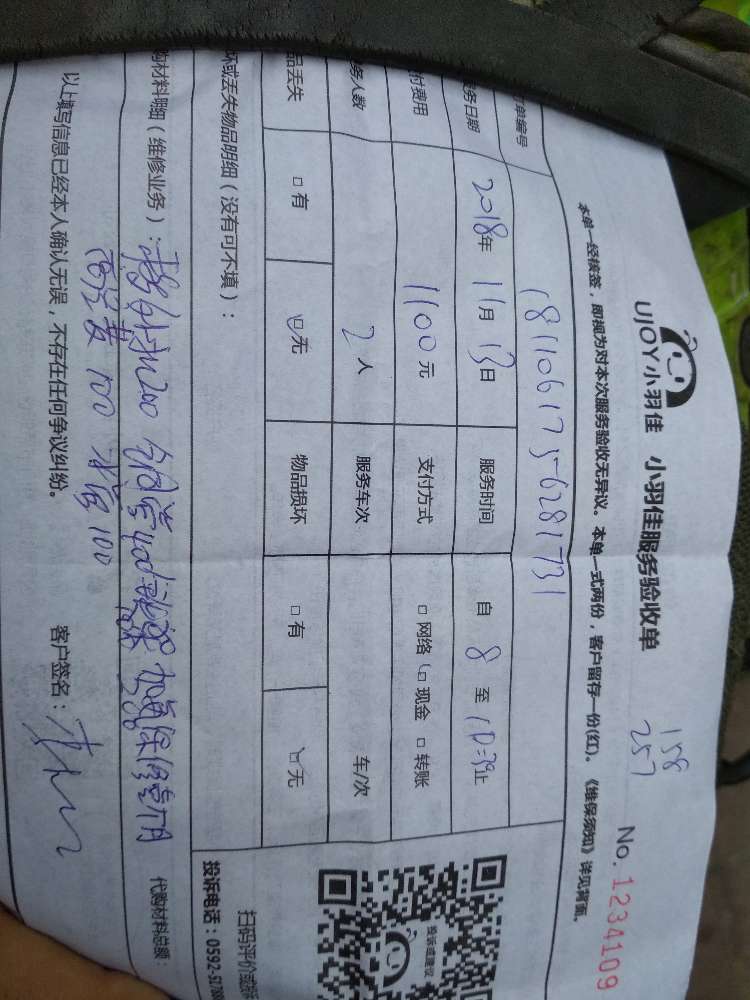 UJOY小羽佳 小羽佳服务验收单
158
257
No. 1234109
本单一经接签，即视为对本次服务验收无异议。本单一式两份，客户留存一份(红)。《维保须知》详见背面。
单编号 1811061756281731
务日期 2018年 11月 13日 服务时间 自 8 至 10:30止
付费用 1100元 支付方式 □ 网络 □ 现金 □ 转账
务人数 2 人 服务车次 车/次
品丢失 □ 有 □ 无 物品损坏 □ 有 □ 无
坏或丢失物品明细（没有可不填）：
扫码评价或投
投诉或建议
投诉电话：0592-5
购材料明细（维修业务）： 200 400 加氟保修 代购材料总额：
200
100 100
以上填写信息已经本人确认无误，不存在任何争议纠纷。 客户签名：